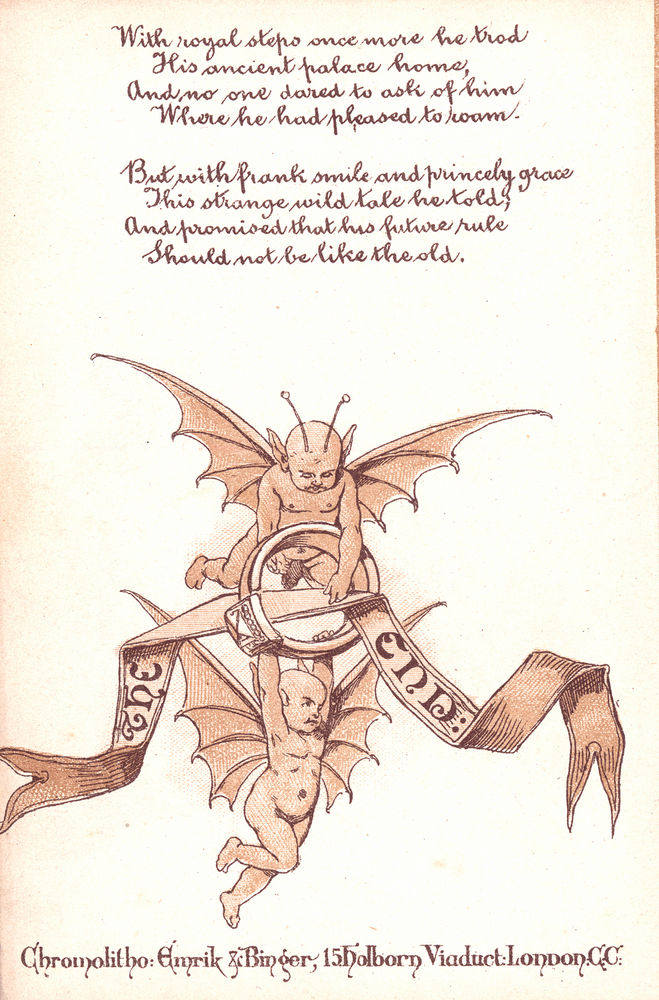 With royal steps once more he trod
His ancient palace home,
And no one dared to ask of him
Where he had pleased to roam.
But with frank smile and princely grace
This strange wild tale he told;
And promised that his future rule
Should not be like the old.
THE
END:
Chromolitho: Emrik & Binger, 15 Holborn Viaduct: London. E.C: